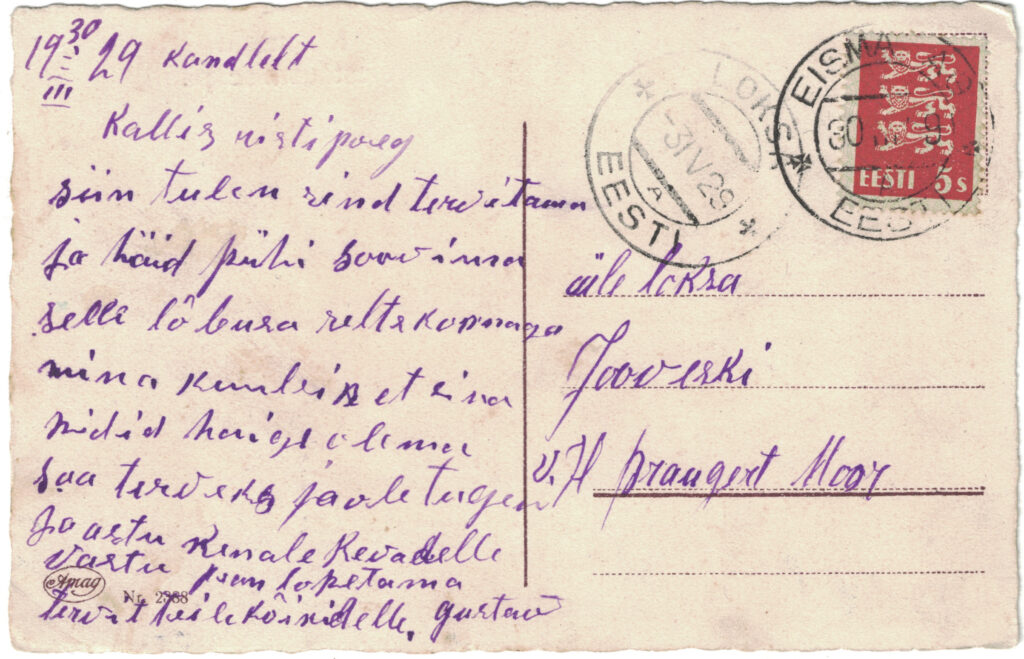 19 30/III 29 Kandlelt
Kallis ristipoeg
siin tulen sind tervitama
ja häid pühi soovima
selle lõbusa seltskonnaga
mina kuulsin et sina
pidid haige olema
saa terveks ja ole tugev
ja astu kenale kevadelle
vastu pean lopetama
tervit teile kõikidelle. gustav
Amag
Nr. 2388
LOKSA
-3IV29
A
EESTI
EISMA
30
EESTI
EESTI 5 s
üle loksa
Jooveski
v. H prangert Moor